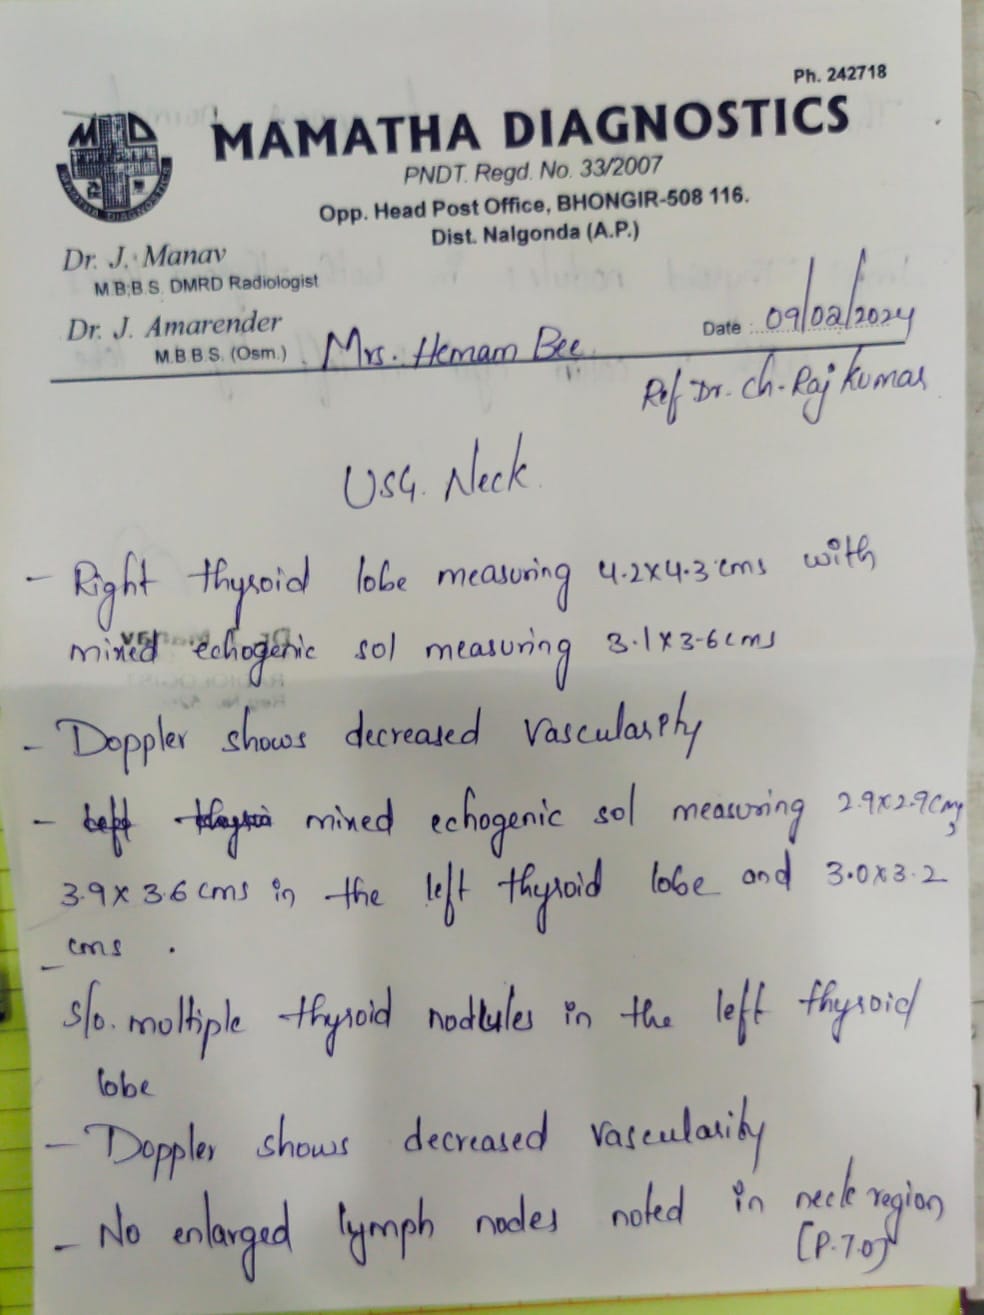 Ph. 242718
MAMATHA DIAGNOSTICS
PNDT. Regd. No. 33/2007
Opp. Head Post Office, BHONGIR-508 116.
Dist. Nalgonda (A.P.)
MAMATHA DIAGNOSTICS
Dr. J. Manav
M.B.B.S. DMRD Radiologist
Dr. J. Amarender
M.B.B.S. (Osm.)
Date : 09/02/2024
Mrs. Hemam Bee
Ref Dr. Ch. Raj Kumar
USG. Neck.
- Right thyroid lobe measuring 4.2x4.3 cms with
mixed echogenic sol measuring 3.1x3.6cms
- Doppler shows decreased vascularity
- Left mixed echogenic sol measuring 2.9x2.9cm,
3.9x3.6cms in the left thyroid lobe and 3.0x3.2
cms .
-
s/o. multiple thyroid nodules in the left thyroid
lobe
- Doppler shows decreased vascularity
- No enlarged lymph nodes noted in neck region
[P.T.O]